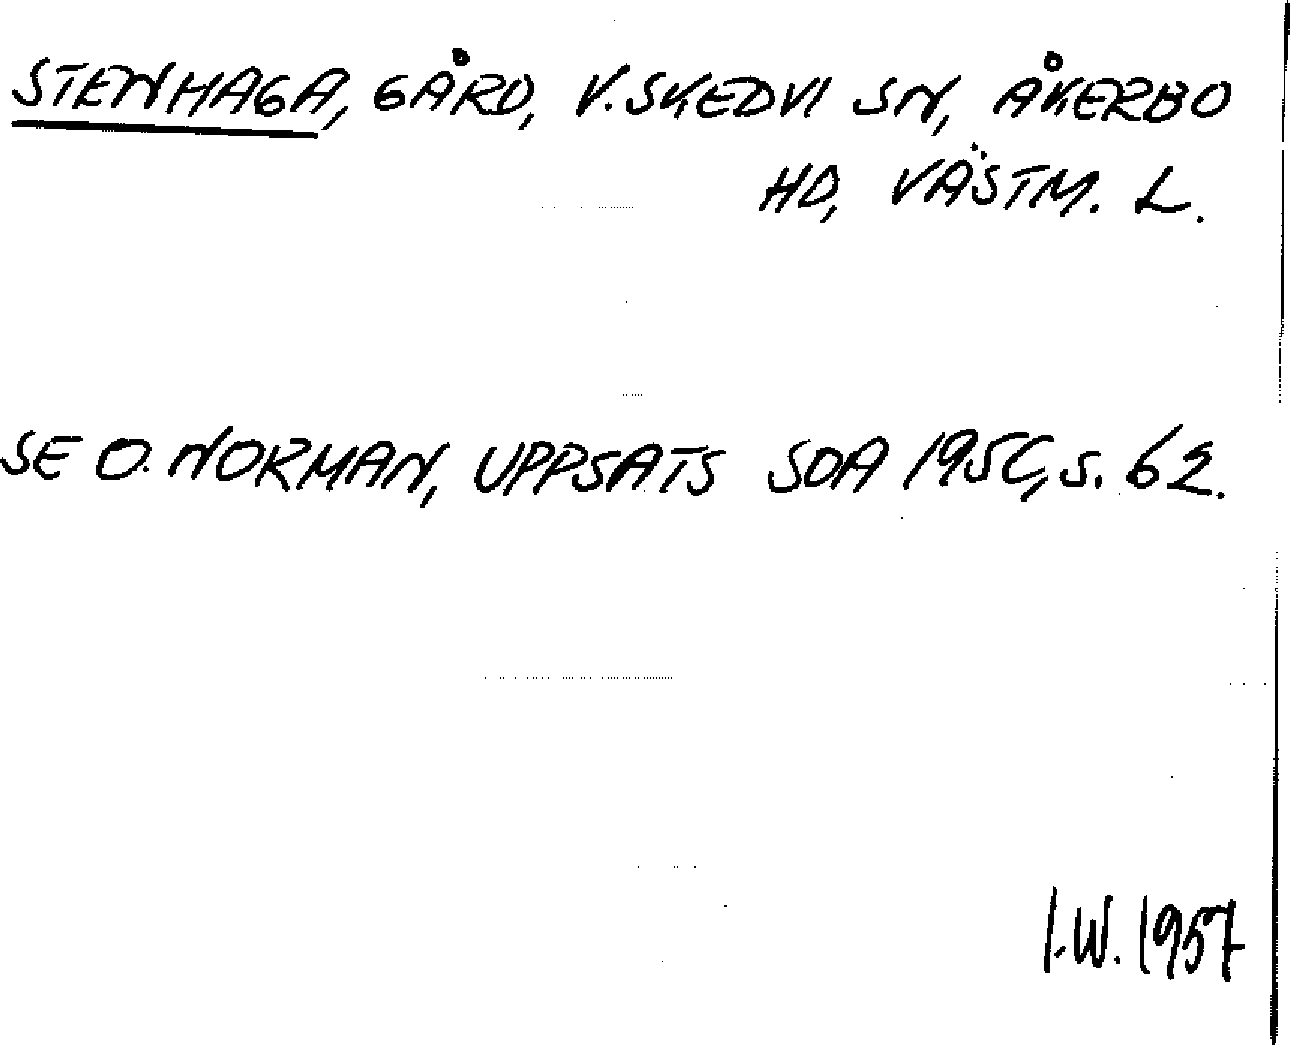 STENHAGA, GÅRD, V. SKEDVI SN, ÅKERBO
HD, VÄSTM. L.
SE O. NORMAN, UPPSATS SOA s. 62.
I.W. 1957